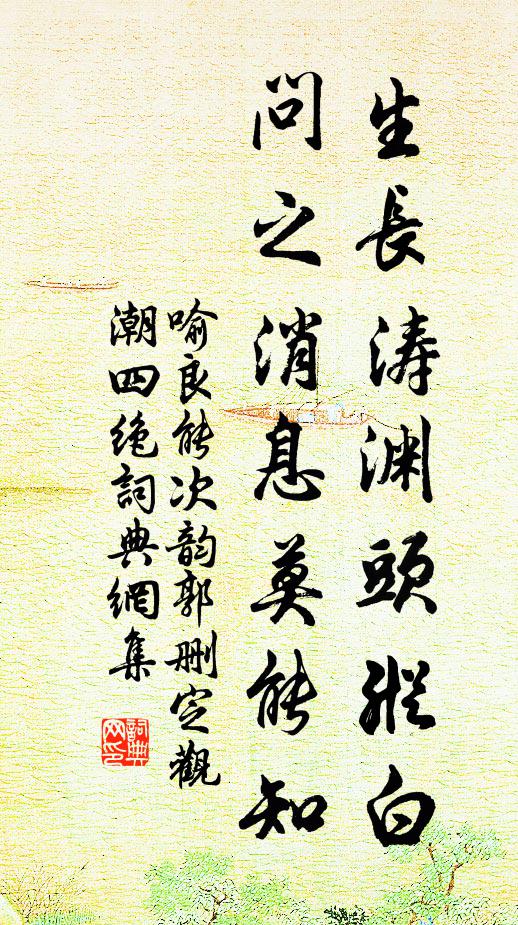 生長涛渊頭縱白
問之消息莫能知
喻良能次韵郭刪定觀
潮四绝詞典網集
詞典网印